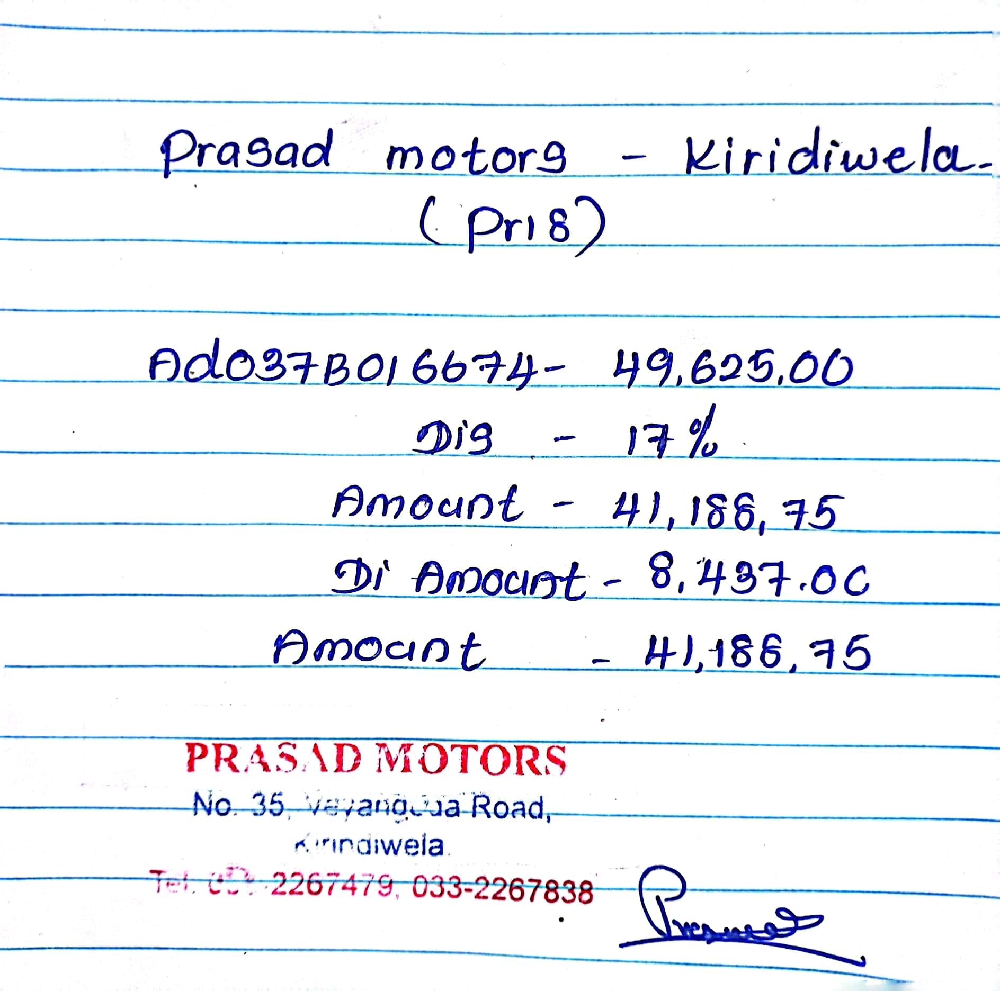 Prasad motors - Kiridiwela-
(Pri8)
Ad037B016674- 49,625.00
Dis - 17%
Amount - 41,188,75
Di Amount - 8,437.00
Amount - 41,188,75
PRASAD MOTORS
No. 35, Road,
Kirindiwela.
Tel: 2267479, 033-2267838